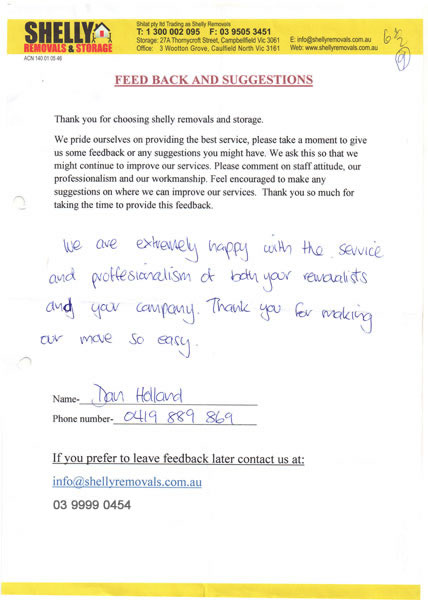 SHELLY
REMOVALS & STORAGE
ACN 140 01 05 46
Shilat pty ltd Trading as Shelly Removals
T: 1 300 002 095 F: 03 9505 3451
Storage: 27A Thornycroft Street, Campbellfield Vic 3061 E: info@shellyremovals.com.au
Office: 3 Wootton Grove, Caulfield North Vic 3161 Web: www.shellyremovals.com.au
FEED BACK AND SUGGESTIONS
Thank you for choosing shelly removals and storage.
We pride ourselves on providing the best service, please take a moment to give
us some feedback or any suggestions you might have. We ask this so that we
might continue to improve our services. Please comment on staff attitude, our
professionalism and our workmanship. Feel encouraged to make any
suggestions on where we can improve our services. Thank you so much for
taking the time to provide this feedback.
We are extremely happy with the service
and proffesionalism of both your removalists
and your company. Thank you for making
our move so easy.
Name- Dan Holland
Phone number- 0419 889 869
If you prefer to leave feedback later contact us at:
info@shellyremovals.com.au
03 9999 0454